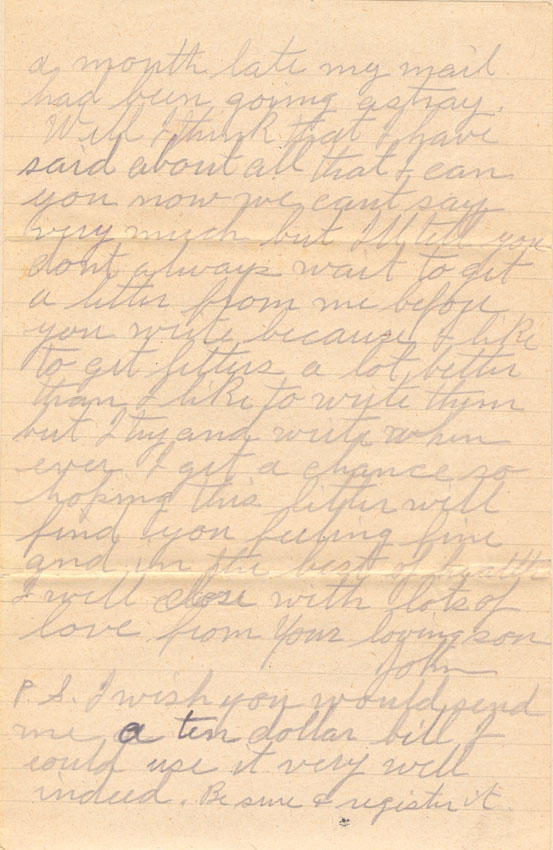 a month late my mail
had been going astray.
Well I think that I have
said about all that I can
you now we cant say
very much but I'll tell you
dont always wait to get
a letter from me before
you write, because I like
to get letters a lot better
than I like to write them
but I try and write when
ever I get a chance so
hoping this letter will
find you feeling fine
and in the best of health
I will close with lots of
love from Your loving son
John
P.S. I wish you would send
me a ten dollar bill I
could use it very well
indeed. Be sure & register it.